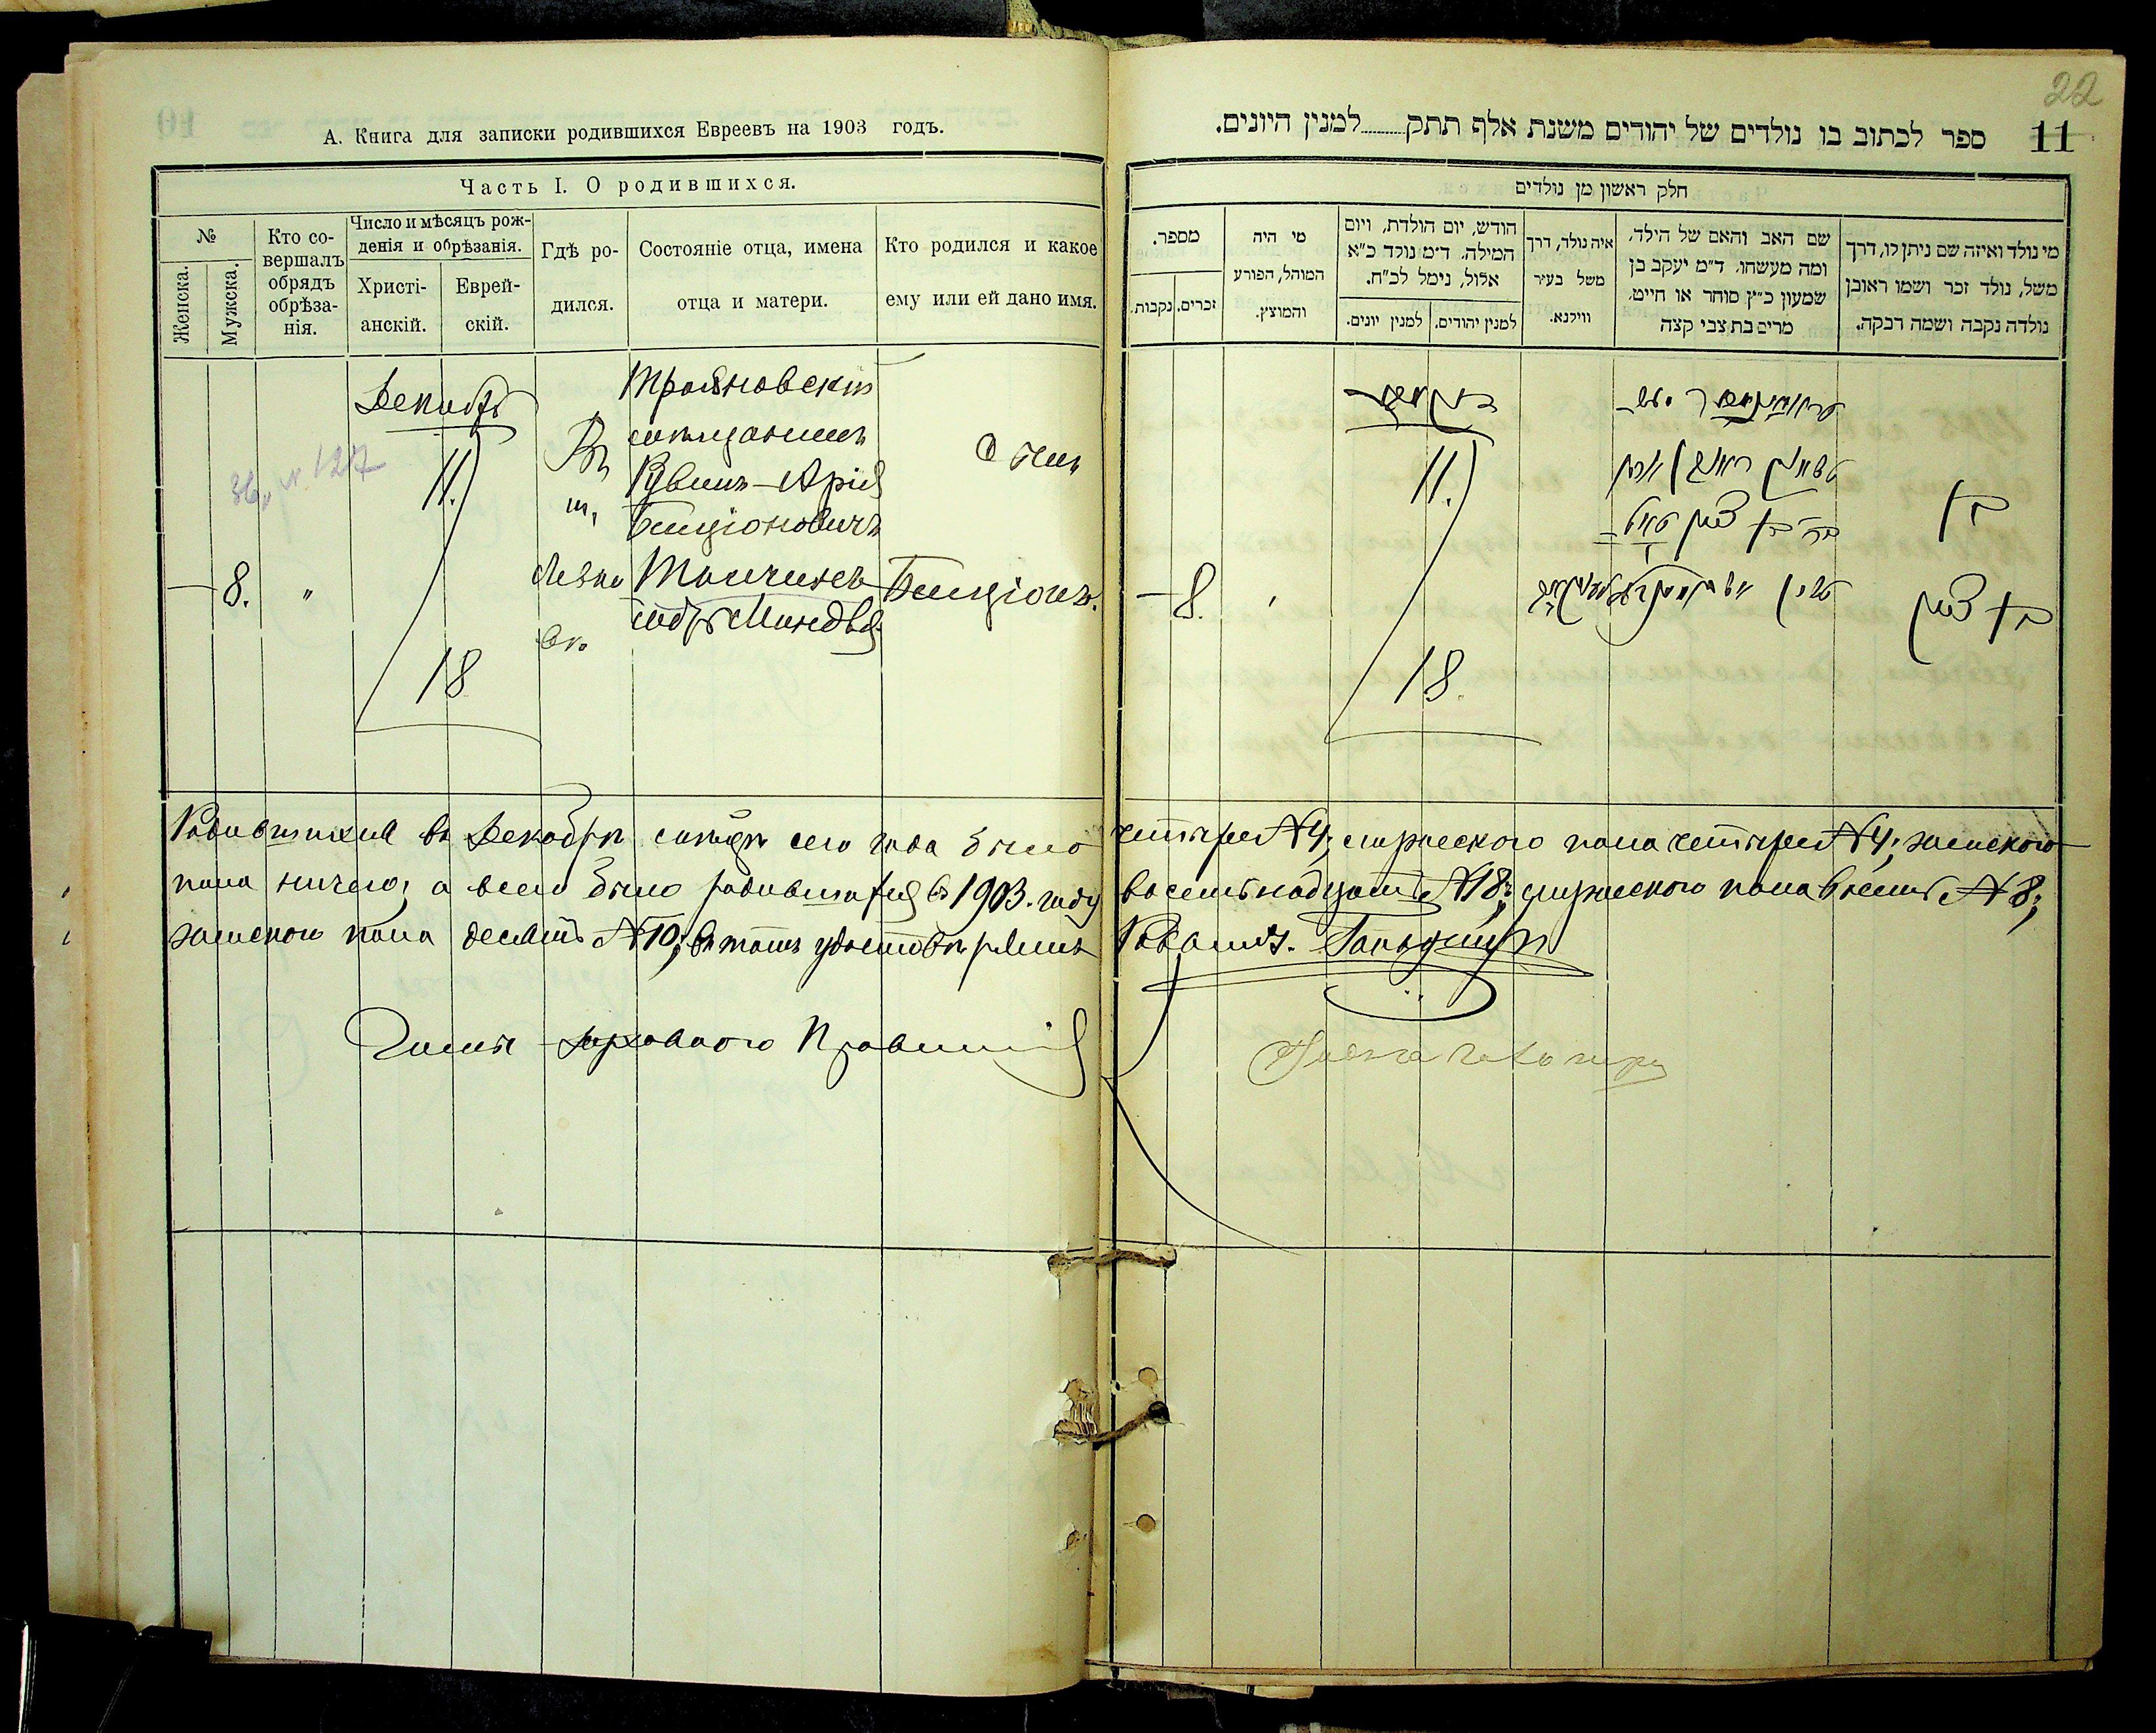 А. Книга для записки родившихся Евреевъ на 1903 годъ.
Часть I. О родившихся.
№
Женска.
Мужска.
Кто со-
вершалъ
обрядъ
обрѣза-
нія.
Число и мѣсяцъ рож-
денія и обрѣзанія.
Христі-
анскій.
Еврей-
скій.
Гдѣ ро-
дился.
Состояніе отца, имена
отца и матери.
Кто родился и какое
ему или ей дано имя.
8.
"
№ 127
Декабрь
11.
18
Въ
м.
Трояновскій
мѣщанинъ
Рувинъ-Арія
Бенціоновичъ
Сынъ
Бенціонъ.
22
11
ספר לכתוב בו נולדים של יהודים משנת אלף תתק למנין היונים.
חלק ראשון מן נולדים
מספר.
נקבות.
זכרים.
מי היה
המוהל, הפורע
והמוצץ.
חודש, יום הולדת, ויום
המילה. ד״מ נולד כ״א
אלול, נימל לכ״ח.
למנין יונים.
למנין יהודים.
איה נולד, דרך
משל בעיר
ווילנא.
שם האב והאם של הילד,
ומה מעשהו. ד״מ יעקב בן
שמעון כ״ץ סוחר או חייט.
מרים בת צבי קצה
מי נולד ואיזה שם ניתן לו, דרך
משל, נולד זכר ושמו ראובן
נולדה נקבה ושמה רבקה.
8.
11.
18.
בן
בן ציון
Родившихся въ Декабрѣ мѣсяцѣ сего года было четыре №4; мужескаго пола четыре №4; женскаго
пола ничего, а всего было родившихся въ 1903. году восемьнадцать №18; мужескаго пола восемь №8;
женскаго пола десять №10; въ томъ удостовѣряемъ Раввинъ.
Члены Духовнаго Правленія